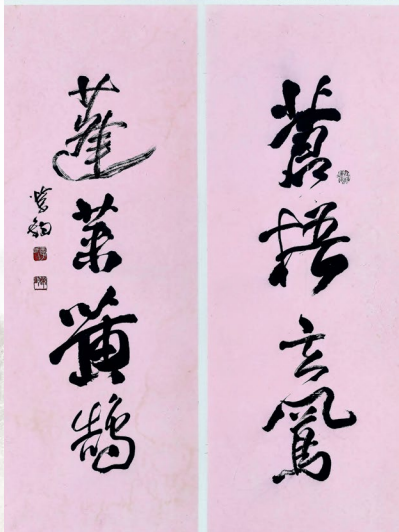 蒼梧玄鳳
蓬萊黃鵠